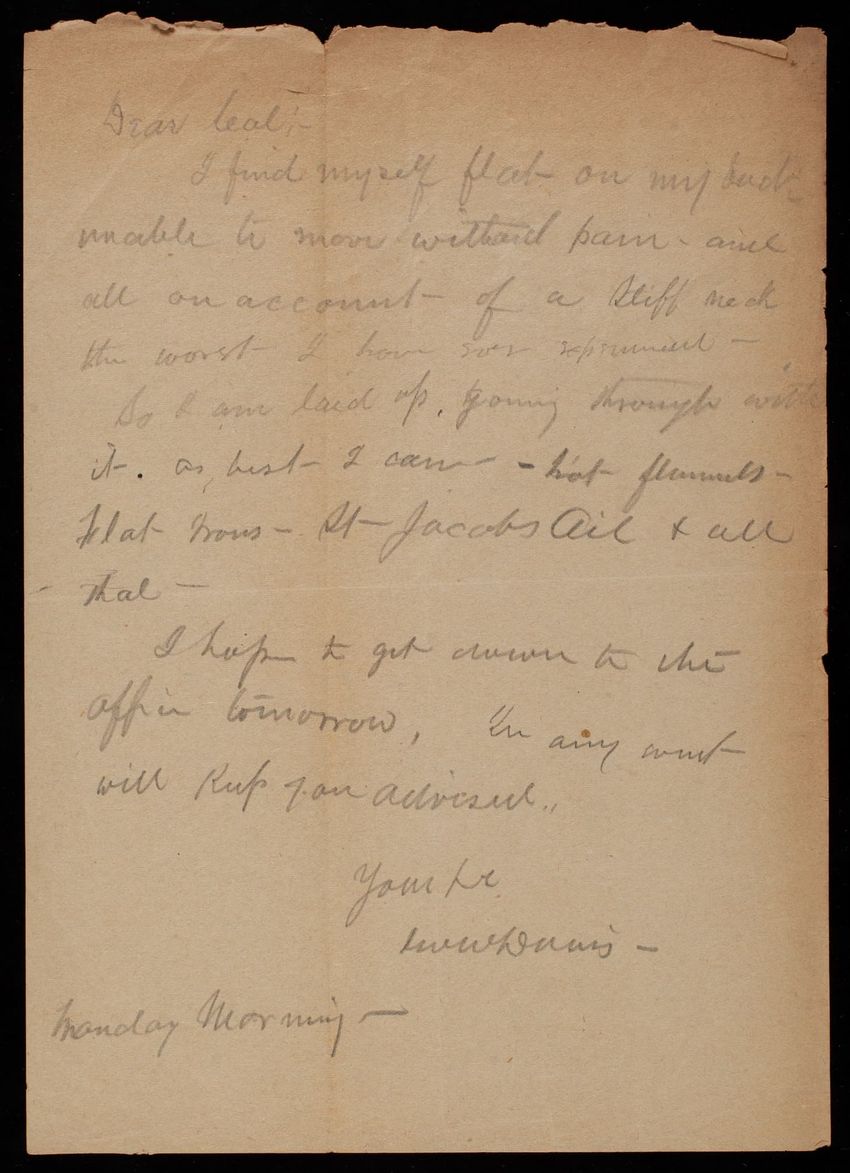 Dear Ceal:-
I find myself flat on my back
unable to move without pain - and
all on account of a stiff neck
the worst I have ever experienced -
So I am laid up, going through with
it. as best I can - - hot flannels -
Flat Irons - St Jacobs Oil & all
that -
I hope to get down to the
office tomorrow, In any event
will keep you advised..
Yours &c
Davis -
Monday Morning -